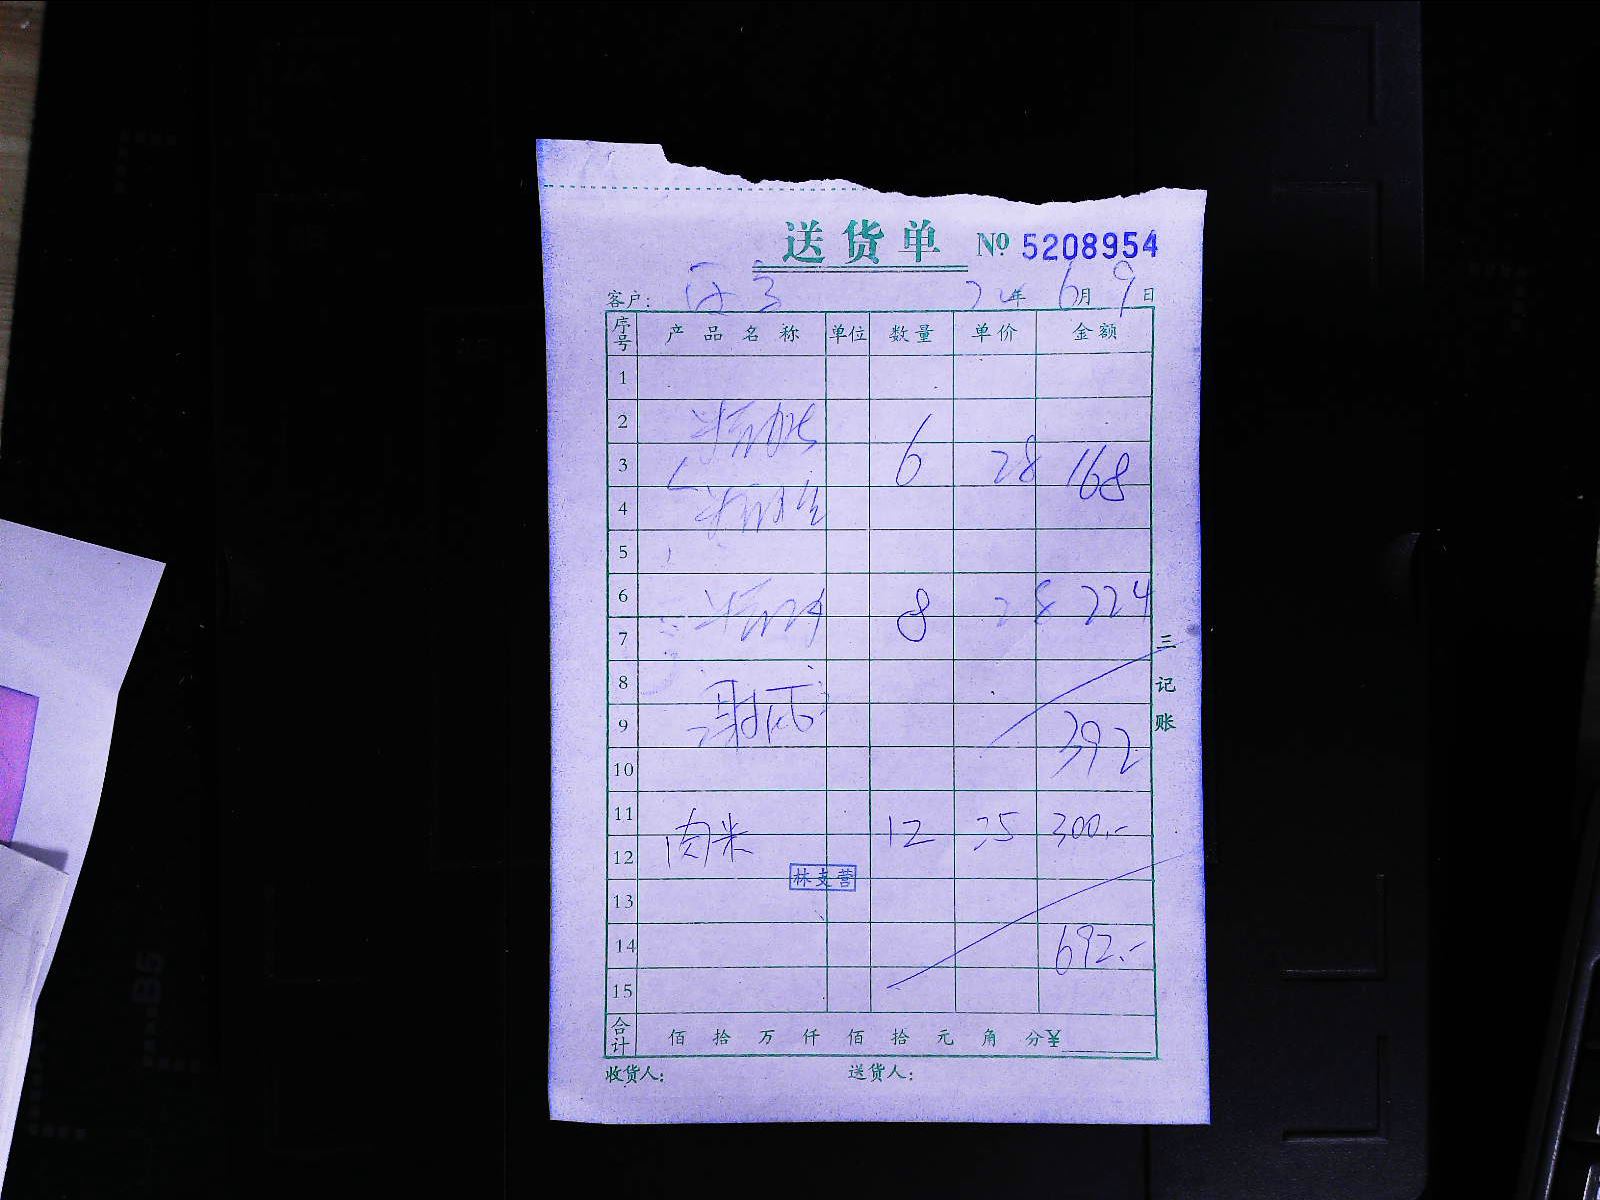 送货单 № 5208954
客户： 年 6月 9日
序号 产品名称 单位 数量 单价 金额
1
2
3 6 28 168
4
5
6 8 28 224
7
8
9 392
10
11 肉米 12 25 300.-
12
林支营
13
14 692.-
15
合计 佰 拾 万 仟 佰 拾 元 角 分￥
收货人： 送货人：
三记账